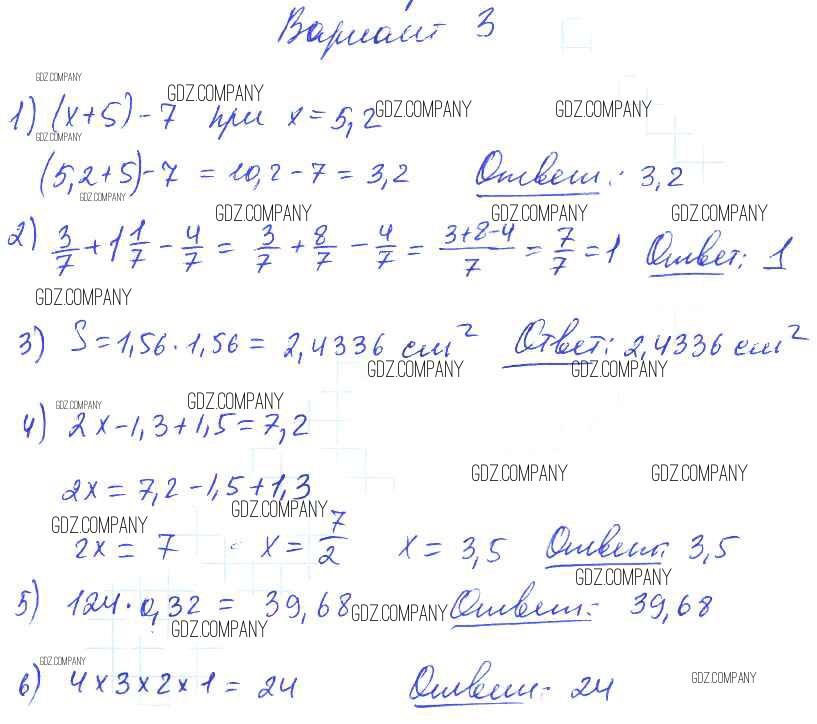 Вариант 3
GDZ.COMPANY
GDZ.COMPANY GDZ.COMPANY GDZ.COMPANY
1) (x+5)-7 при x=5,2
GDZ.COMPANY
(5,2+5)-7 = 10,2-7 = 3,2 Ответ: 3,2
GDZ.COMPANY
GDZ.COMPANY GDZ.COMPANY GDZ.COMPANY
2) 3/7 + 1 1/7 - 4/7 = 3/7 + 8/7 - 4/7 = (3+8-4)/7 = 7/7 = 1 Ответ: 1
GDZ.COMPANY
3) S=1,56·1,56 = 2,4336 см² Ответ: 2,4336 см²
GDZ.COMPANY GDZ.COMPANY
GDZ.COMPANY GDZ.COMPANY
4) 2x-1,3+1,5=7,2
GDZ.COMPANY GDZ.COMPANY
2x = 7,2-1,5+1,3
GDZ.COMPANY GDZ.COMPANY
2x = 7 x = 7/2 x = 3,5 Ответ: 3,5
GDZ.COMPANY
5) 124·0,32 = 39,68 GDZ.COMPANY Ответ: 39,68
GDZ.COMPANY
GDZ.COMPANY
6) 4×3×2×1 = 24 Ответ: 24 GDZ.COMPANY